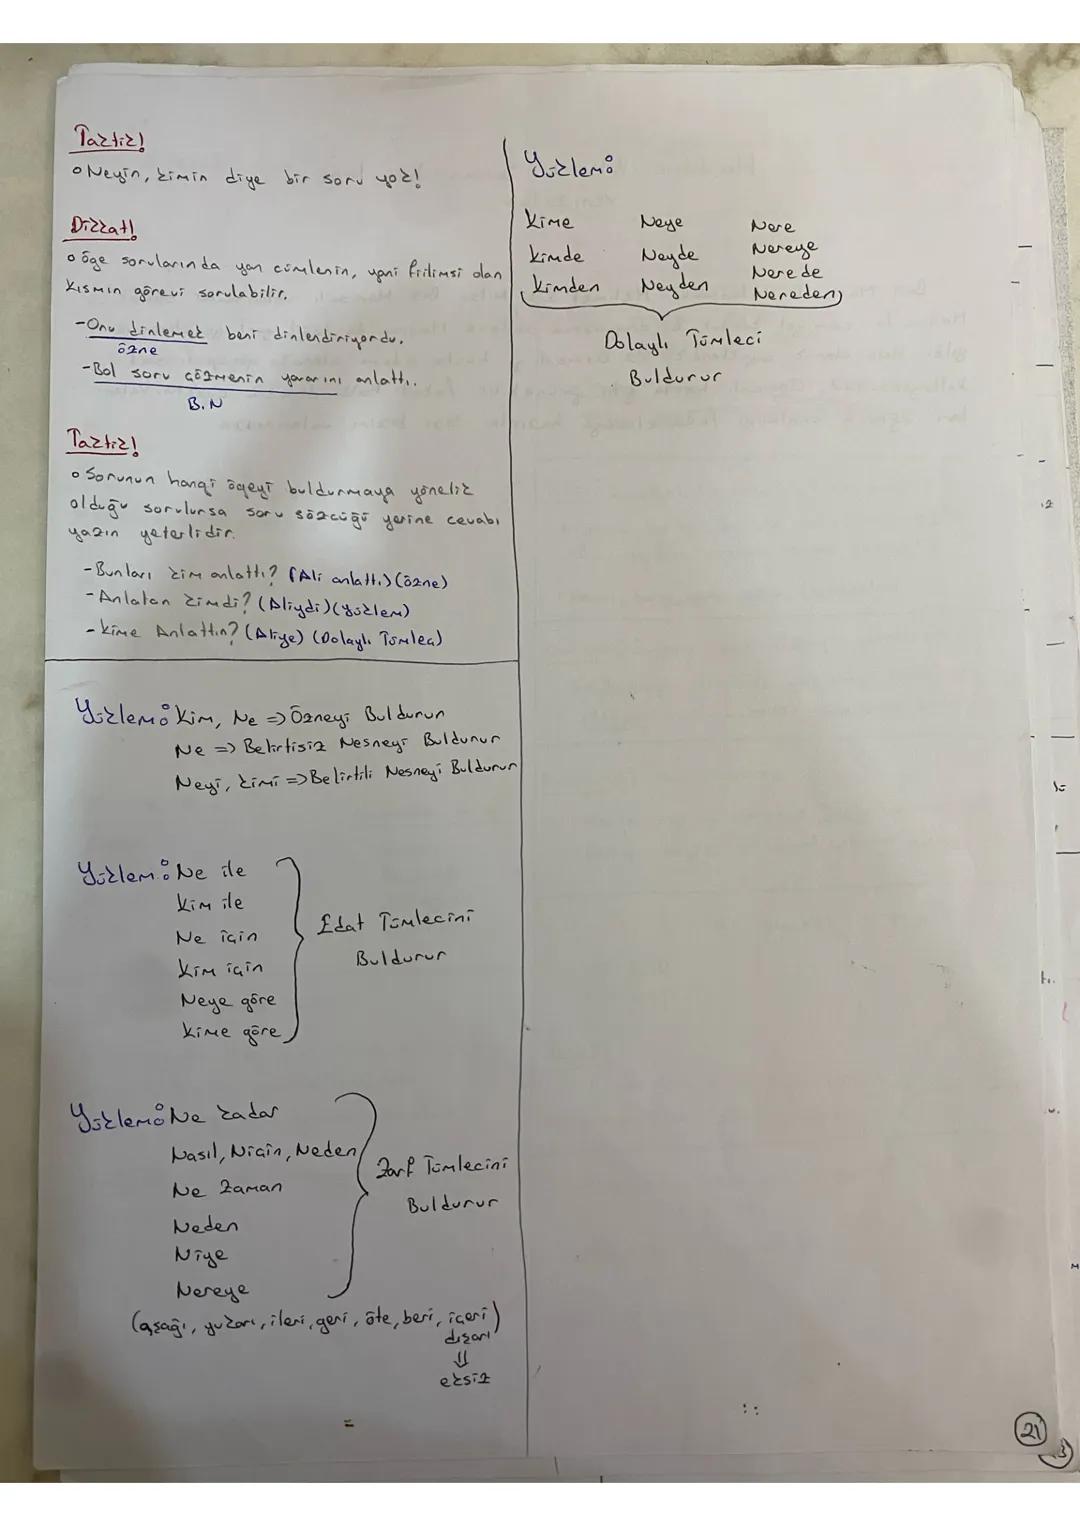 Taktik!
Neyin, kimin diye bir soru yok!
Dikkat!
öge sorularında yan cümlenin, yani fiilimsi olan
kısmın görevi sorulabilir.
-Onu dinlemek beni dinlendiriyordu.
özne
-Bol soru çözmenin yararını anlattı.
B.N
Taktik!
Sorunun hangi ögeyi buldurmaya yönelik
olduğu sorulursa soru sözcüğü yerine cevabı
yazın yeterlidir.
-Bunları kim anlattı? (Ali anlattı) (özne)
-Anlatan kimdi? (Aliydi) (yüklem)
-Kime Anlattın? (Aliye) (Dolaylı Tümleç)
Yükleme Kim, Ne => Özneyi Buldurur
Ne => Belirtisiz Nesneyi Buldurur
Neyi, kimi => Belirtili Nesneyi Buldurur
Yüklem: Ne ile
Kim ile
Ne için
Kim için
Neye göre
Kime göre
Edat Tümlecini
Buldurur
Yükleme Ne kadar
Nasıl, Niçin, Neden
Ne Zaman
Neden
Niye
Nereye
Zarf Tümlecini
Buldurur
(aşağı, yukarı, ileri, geri, öte, beri, içeri)
dışarı
⇓
eksiz
Yüklem:
Kime Neye Nere
Kimde Neyde Nereye
Kimden Neyden Nerede
Nereden
Dolaylı Tümleci
Buldurur
21